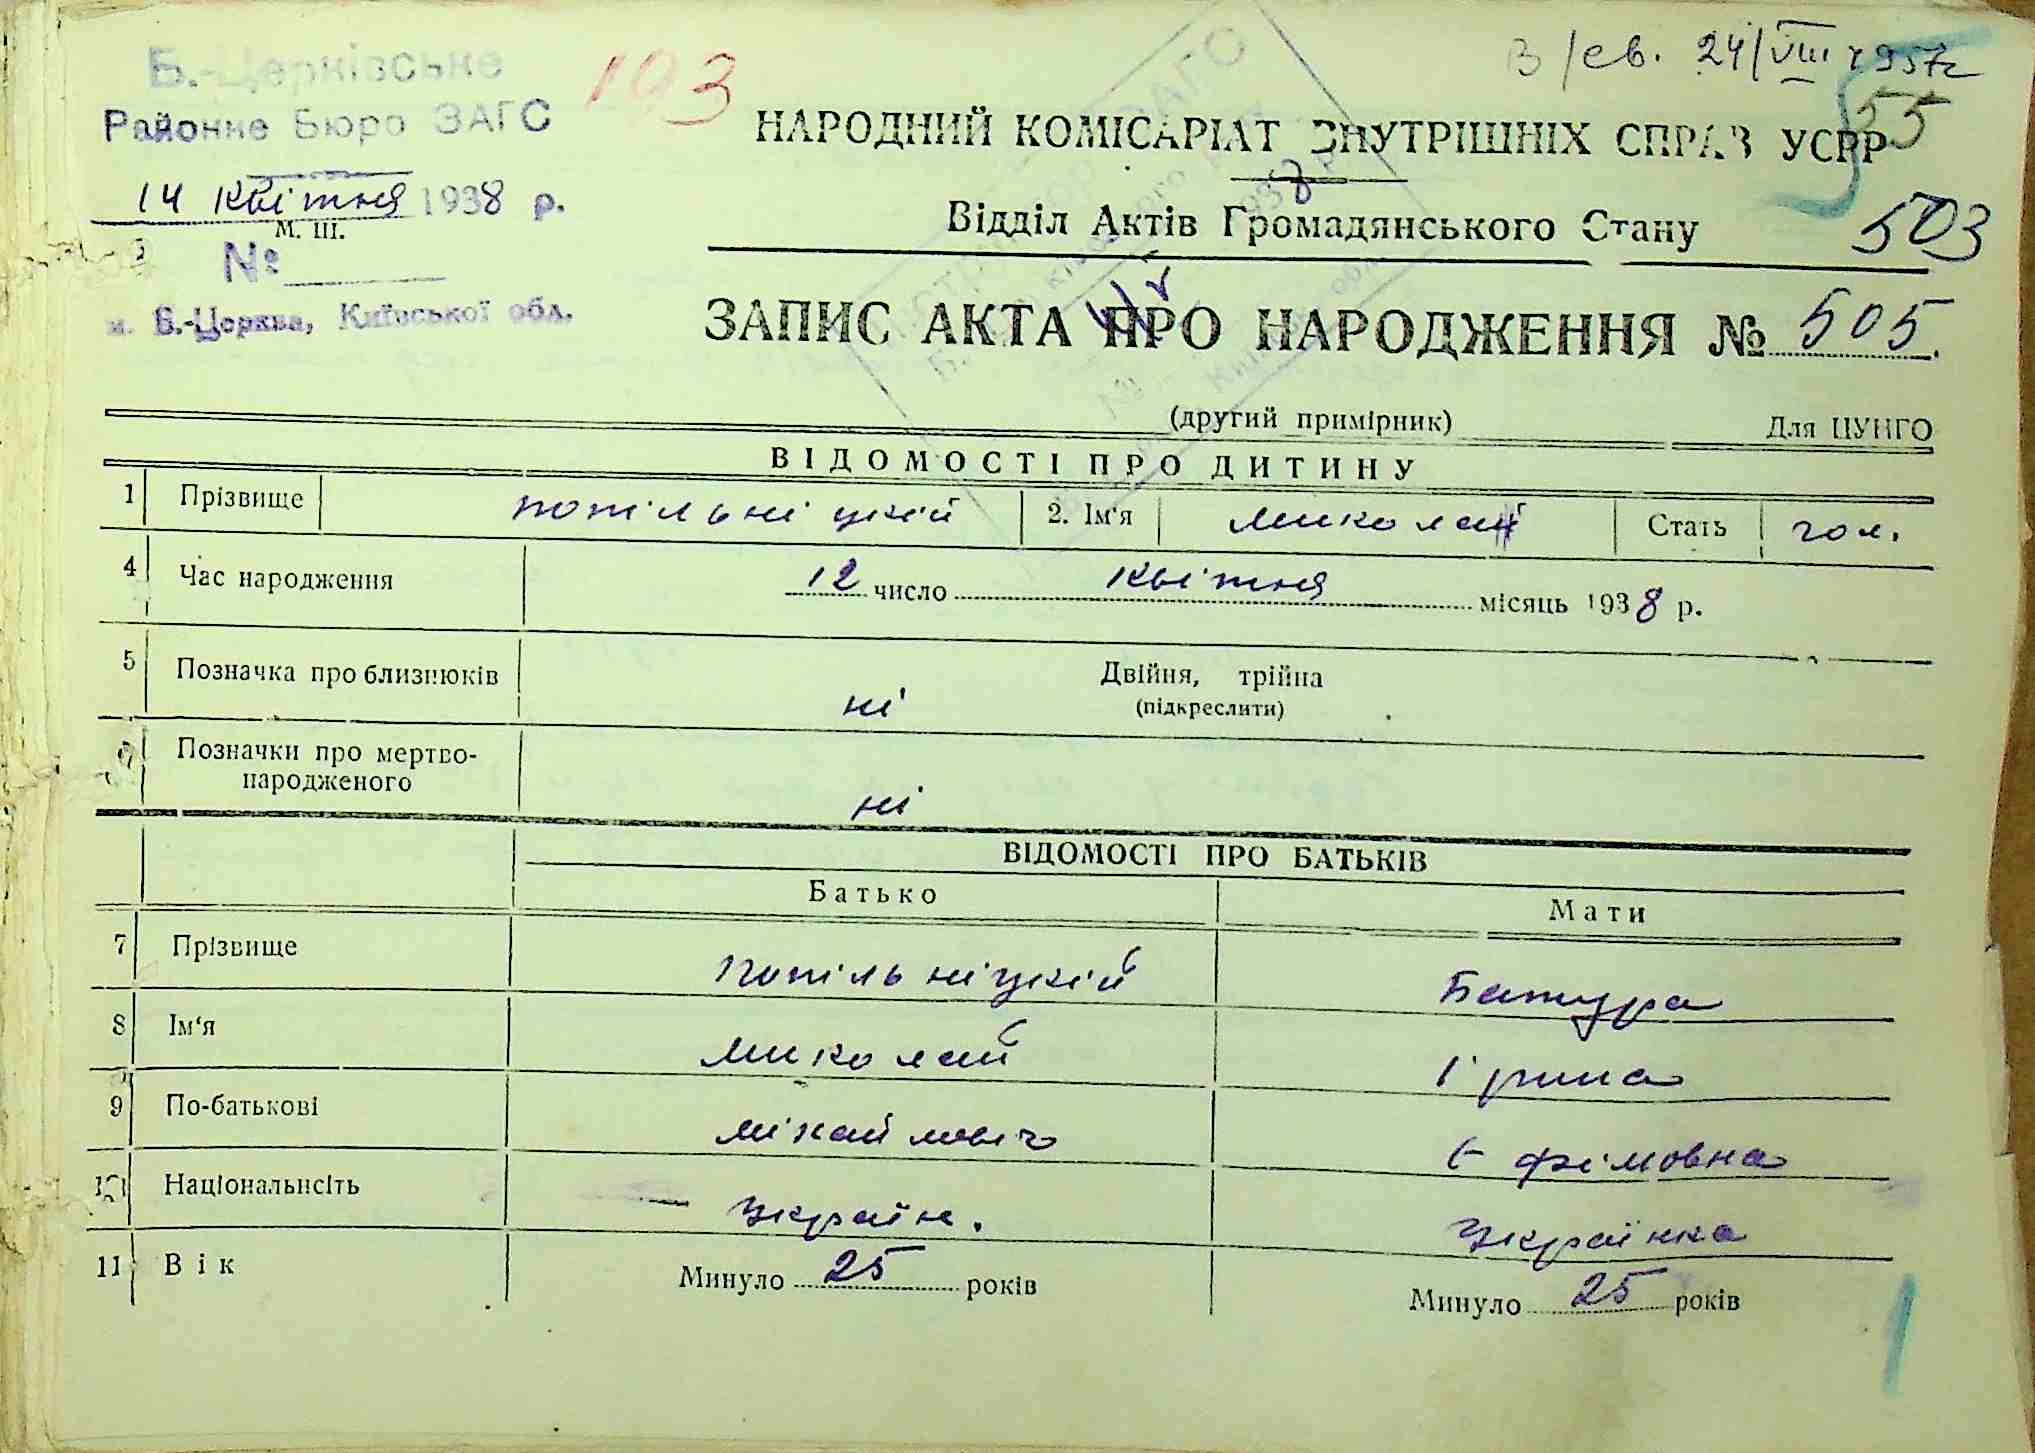 В/св. 24/VIII 1957г
Б.-Церківське
Районне Бюро ЗАГС
193
55
14 квітня 1938 р.
М. Ш.
№
м. Б.-Церква, Київської обл.
НАРОДНИЙ КОМІСАРІАТ ВНУТРІШНІХ СПРАВ УСРР
Відділ Актів Громадянського Стану
503
ЗАПИС АКТА ПРО НАРОДЖЕННЯ № 505.
(другий примірник) Для ЦУНГО
ВІДОМОСТІ ПРО ДИТИНУ
1 Прізвище попільніцкій 2. Ім'я миколай Стать чол.
4 Час народження 12 число квітня місяць 1938 р.
5 Позначка про близнюків ні Двійня, трійна
(підкреслити)
Позначки про мертво-
народженого ні
ВІДОМОСТІ ПРО БАТЬКІВ
Батько Мати
7 Прізвище попільніцкій Батура
8 Ім'я миколай Ірина
9 По-батькові міхайловіч Єфімовна
10 Національність україн. українка
11 Вік Минуло 25 років Минуло 25 років